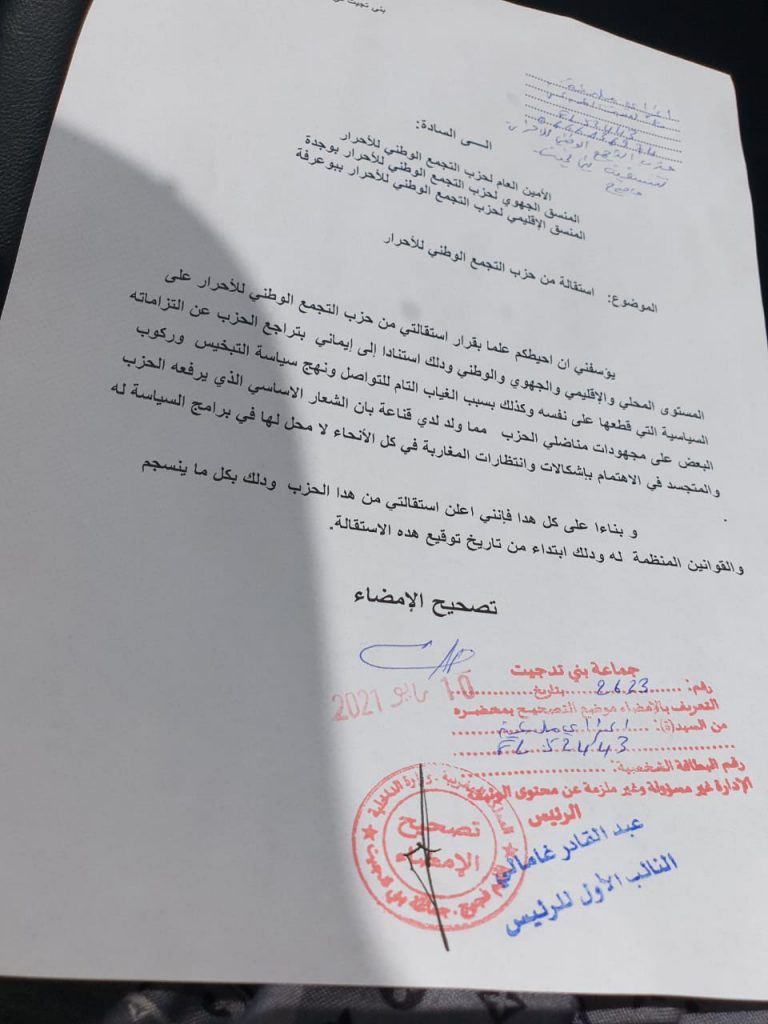 بني تجيت في
الى السادة:
الأمين العام لحزب التجمع الوطني للأحرار
المنسق الجهوي لحزب التجمع الوطني للأحرار بوجدة
المنسق الإقليمي لحزب التجمع الوطني للأحرار ببوعرفة
الموضوع: استقالة من حزب التجمع الوطني للأحرار
يؤسفني ان احيطكم علما بقرار استقالتي من حزب التجمع الوطني للأحرار على
المستوى المحلي والإقليمي والجهوي والوطني ودلك استنادا إلى إيماني بتراجع الحزب عن التزاماته
السياسية التي قطعها على نفسه وكذلك بسبب الغياب التام للتواصل ونهج سياسة التبخيس وركوب
البعض على مجهودات مناضلي الحزب مما ولد لدي قناعة بان الشعار الاساسي الذي يرفعه الحزب
والمتجسد في الاهتمام بإشكالات وانتظارات المغاربة في كل الأنحاء لا محل لها في برامج السياسة له
.
و بناءا على كل هدا فإنني اعلن استقالتي من هدا الحزب ودلك بكل ما ينسجم
والقوانين المنظمة له ودلك ابتداء من تاريخ توقيع هده الاستقالة.
تصحيح الإمضاء
جماعة بني تدجيت
رقم: 2623 بتاريخ 10 مايو 2021
التعريف بالإمضاء موضوع التصحيح بمحضره
من السيد(ة):
FL 52443
رقم البطاقة الشخصية:
الإدارة غير مسؤولة وغير ملزمة عن محتوى الوثيقة
الرئيس
عبد القادر غامالي
النائب الأول للرئيس
المملكة المغربية . وزارة الداخلية
تصحيح
الإمضاء